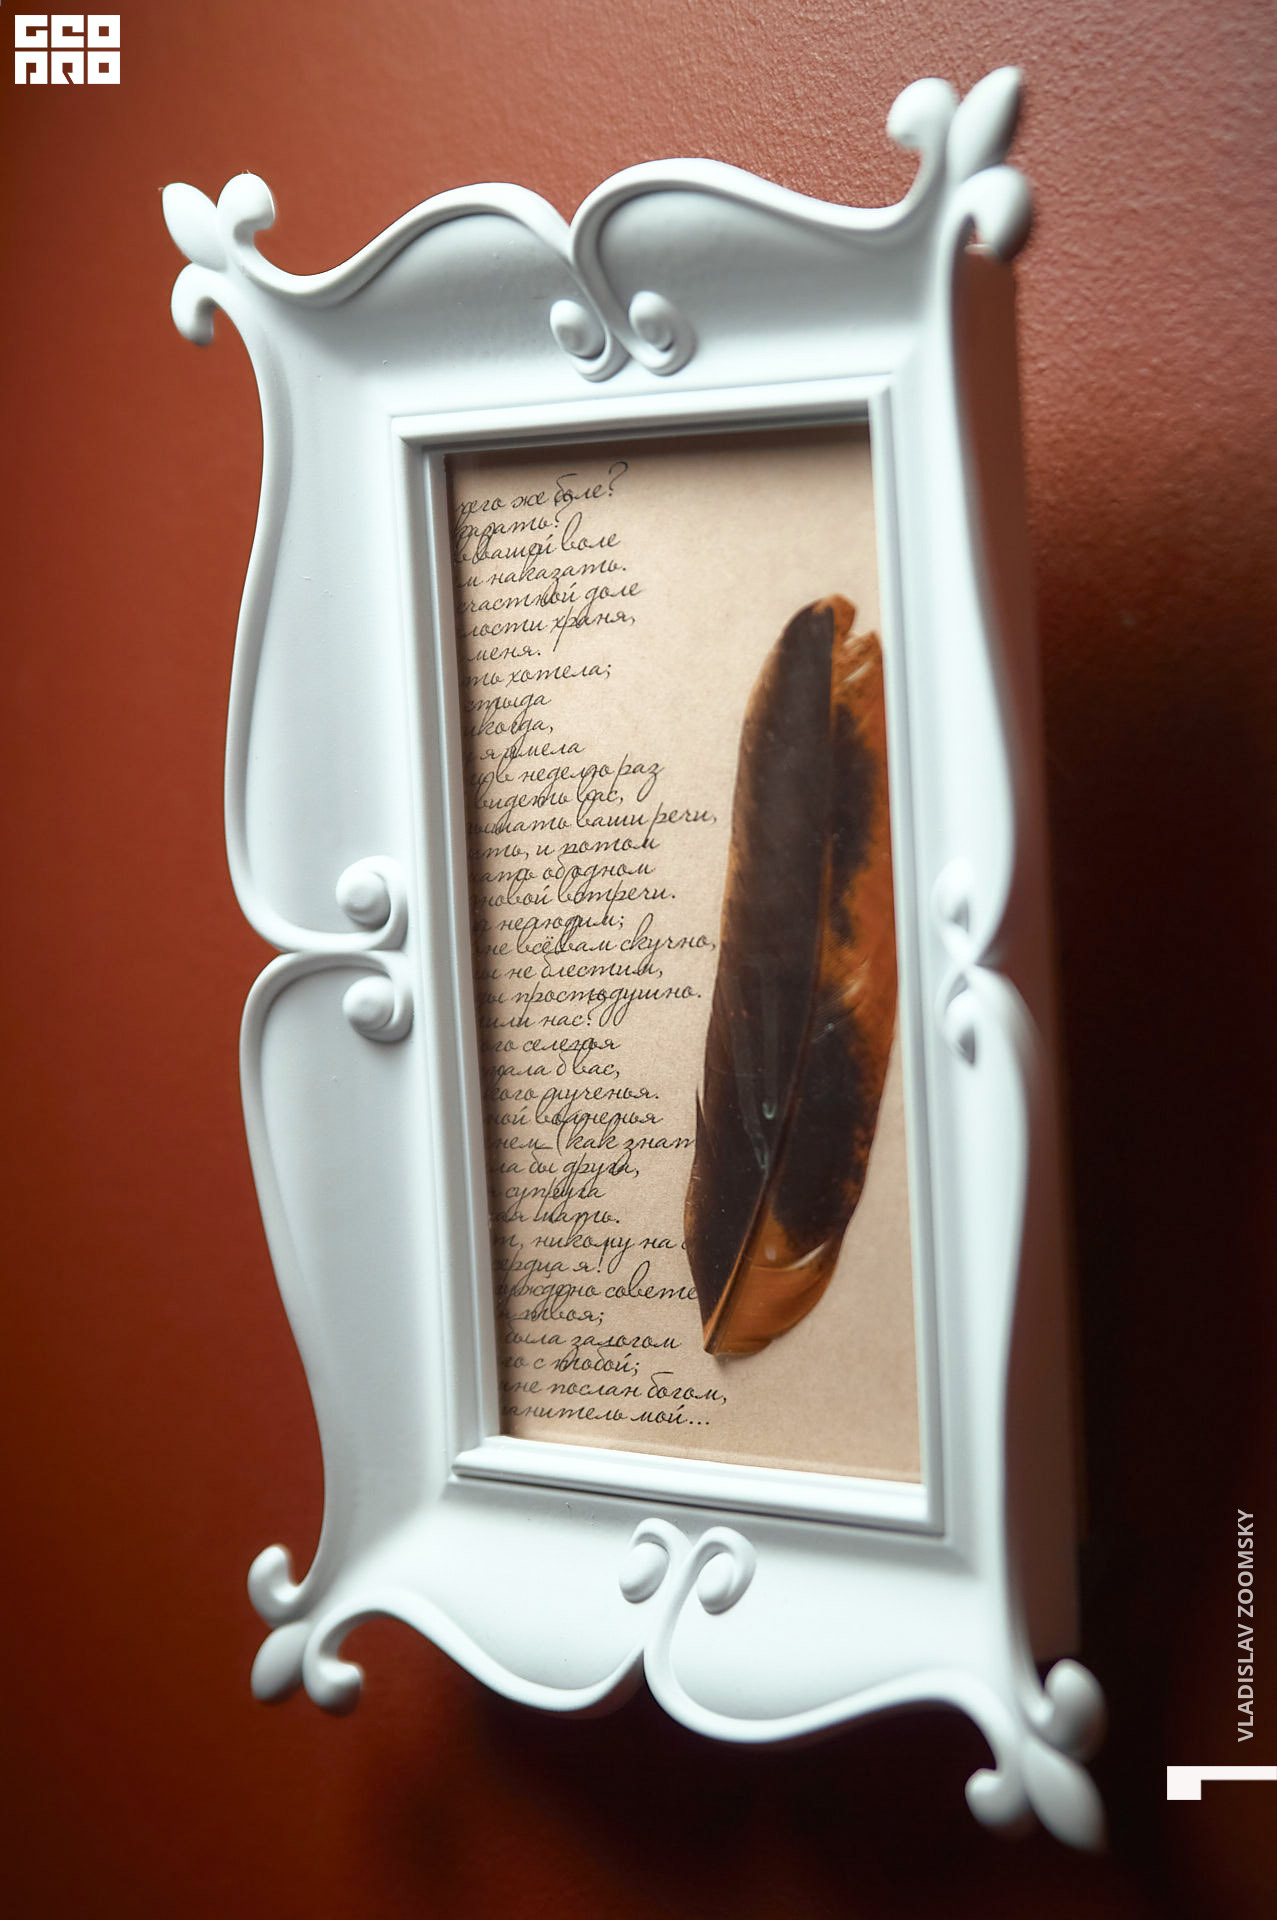 GEO
PRO
чего же боле?
казать?
в вашей воле
м наказать.
счастной доле
лости храня,
меня.
ть хотела;
стыда
икогда,
я имела
ь в неделю раз
видеть вас,
ышать ваши речи,
ить, и потом
мать об одном
новой встречи.
нелюдим;
не всё вам скучно,
ы не блестим,
ы простодушно.
или нас?
ого селенья
нала б вас,
кого мученья.
ной волненья
нем (как знат
ла бы друга,
супруга
ая мать.
т, никому на с
сердца я!
уждено совете
твоя;
была залогом
го с тобой;
мне послан богом,
анитель мой...
VLADISLAV ZOOMSKY